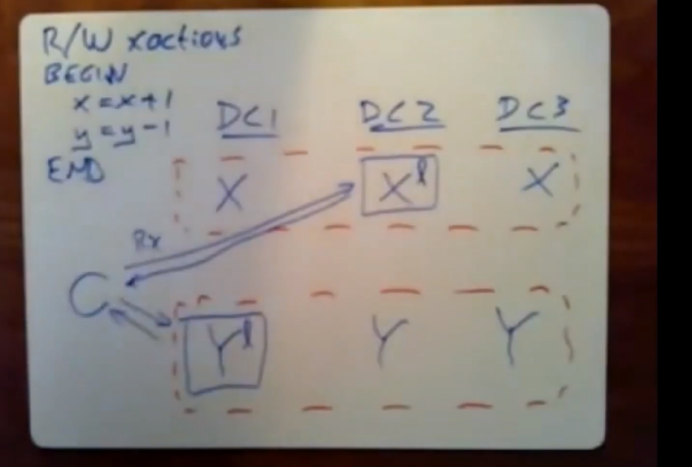 R/W xactions
BEGIN
x = x + 1
y = y - 1
END
DC1 DC2 DC3
X Xl X
Rx
C
Yl Y Y